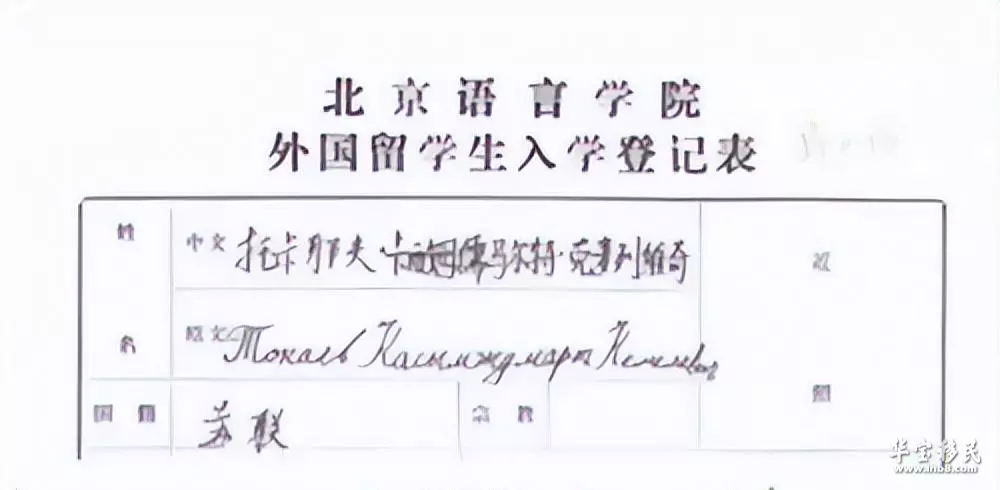 北京语言学院
外国留学生入学登记表
姓名
中文 托卡耶夫·卡 马尔特·克麦列维奇
原文 Токаев Касымжомарт Кемелевич
国籍 苏联 宗教
照
华宝移民
www.lhb8.com